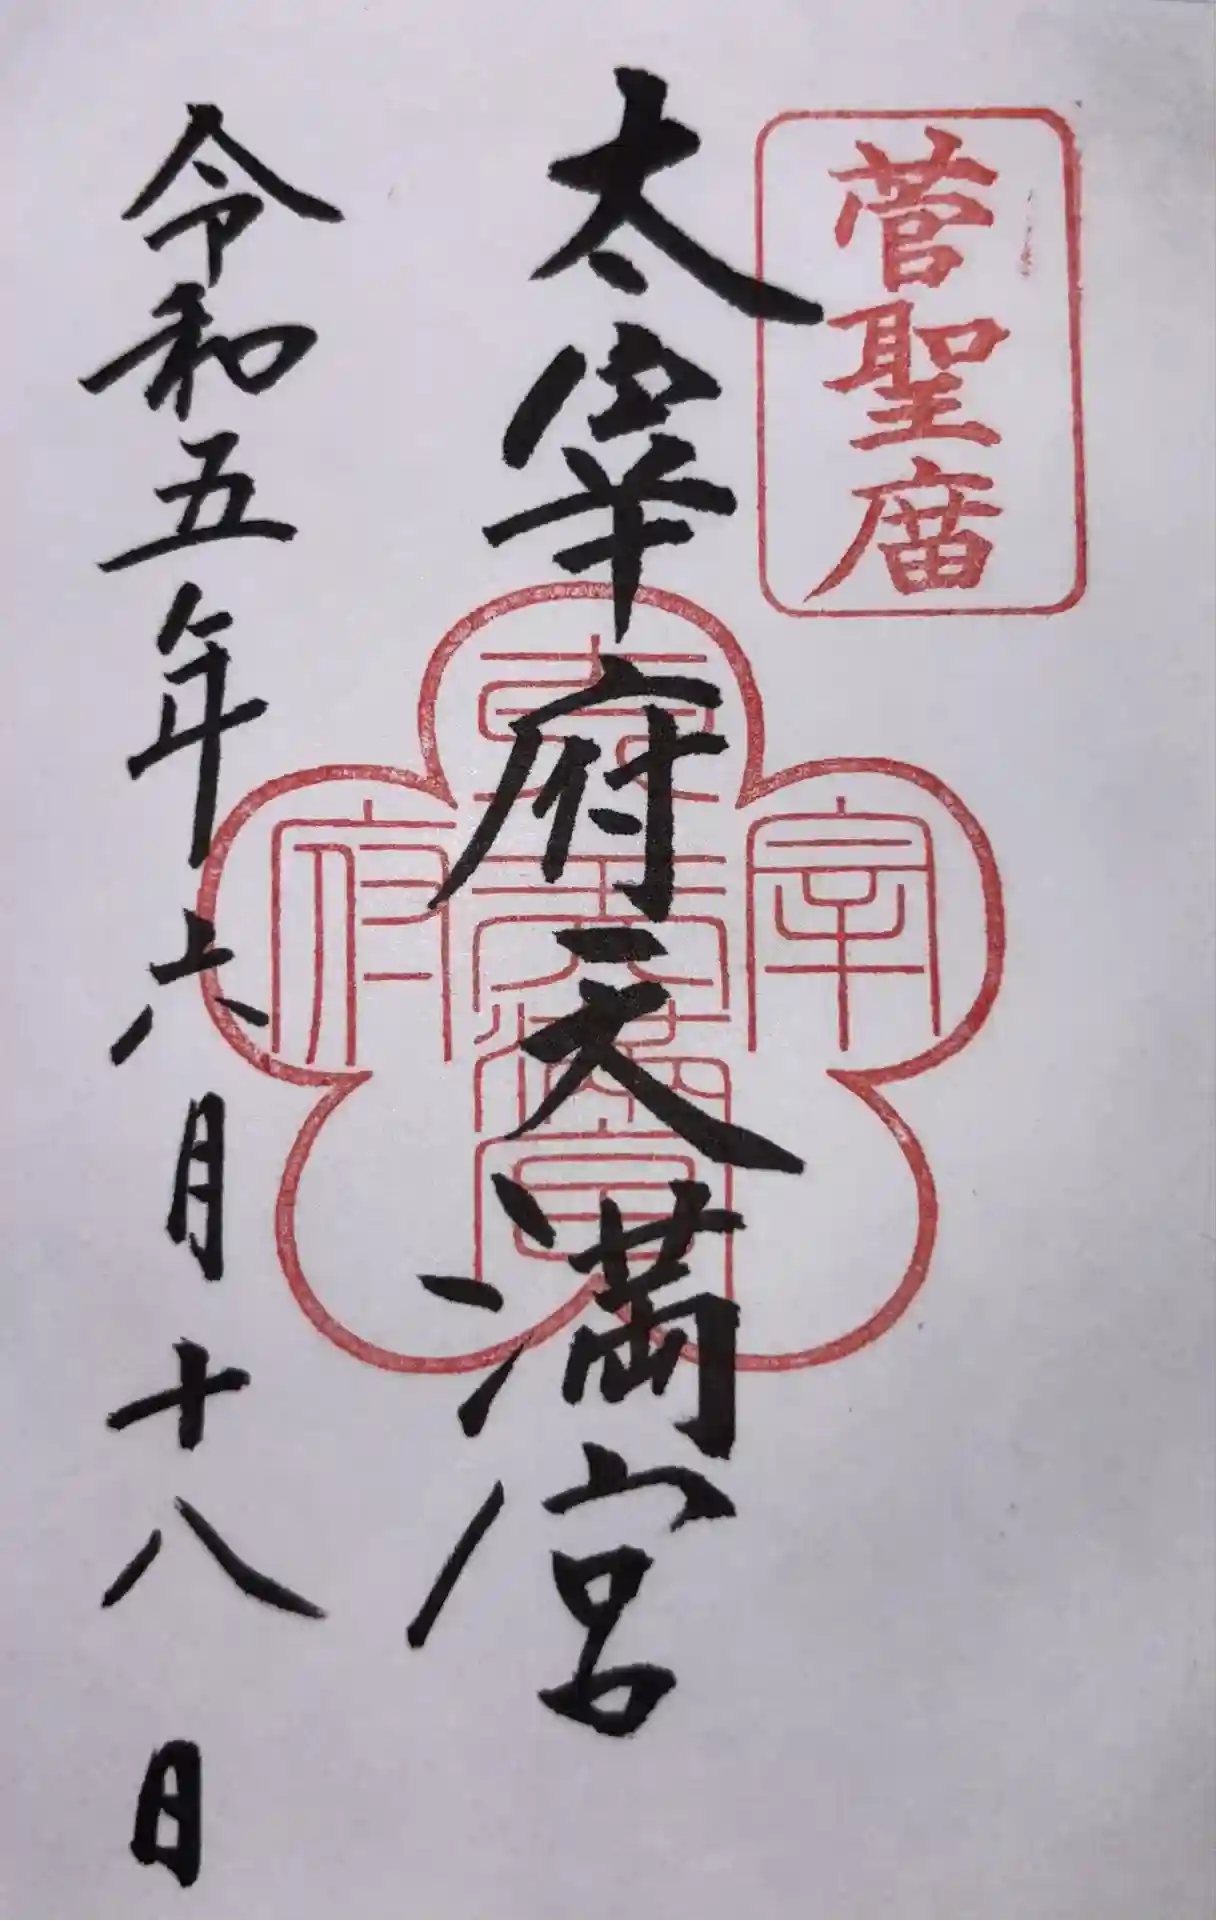 菅聖庿
太宰府天満宮
太宰府
天満宮
令和五年六月十八日